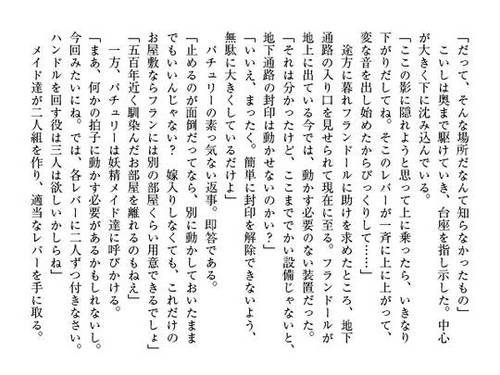 「だって、そんな場所だなんて知らなかったもの」
　こいしは奥まで駆けていき、台座を指し示した。中心
が大きく下に沈み込んでいる。
「ここの影に隠れようと思って上に乗ったら、いきなり
下がりだしてね。そこのレバーが一斉に上に上がって、
変な音を出し始めたからびっくりして……」
　途方に暮れフランドールに助けを求めたところ、地下
通路の入り口を見せられて現在に至る。フランドールが
地上に出ている今では、動かす必要のない装置だった。
「それは分かったけど、ここまででかい設備じゃないと、
地下通路の封印は動かせないのかい？」
「いいえ、まったく。簡単に封印を解除できないよう、
無駄に大きくしているだけよ」
　パチュリーの素っ気ない返事。即答である。
「止めるのが面倒だってなら、別に動かしておいたまま
でもいいんじゃない？　嫁入りしなくても、これだけの
お屋敷ならフランには別の部屋くらい用意できるでしょ」
「五百年近く馴染んだお部屋を離れるのもねえ」
　一方、パチュリーは妖精メイド達に呼びかける。
「まあ、何かの拍子に動かす必要があるかもしれないし。
今回みたいにね。では、各レバーに二人ずつ付きなさい。
ハンドルを回す役は三人は欲しいかしらね」
　メイド達が二人組を作り、適当なレバーを手に取る。